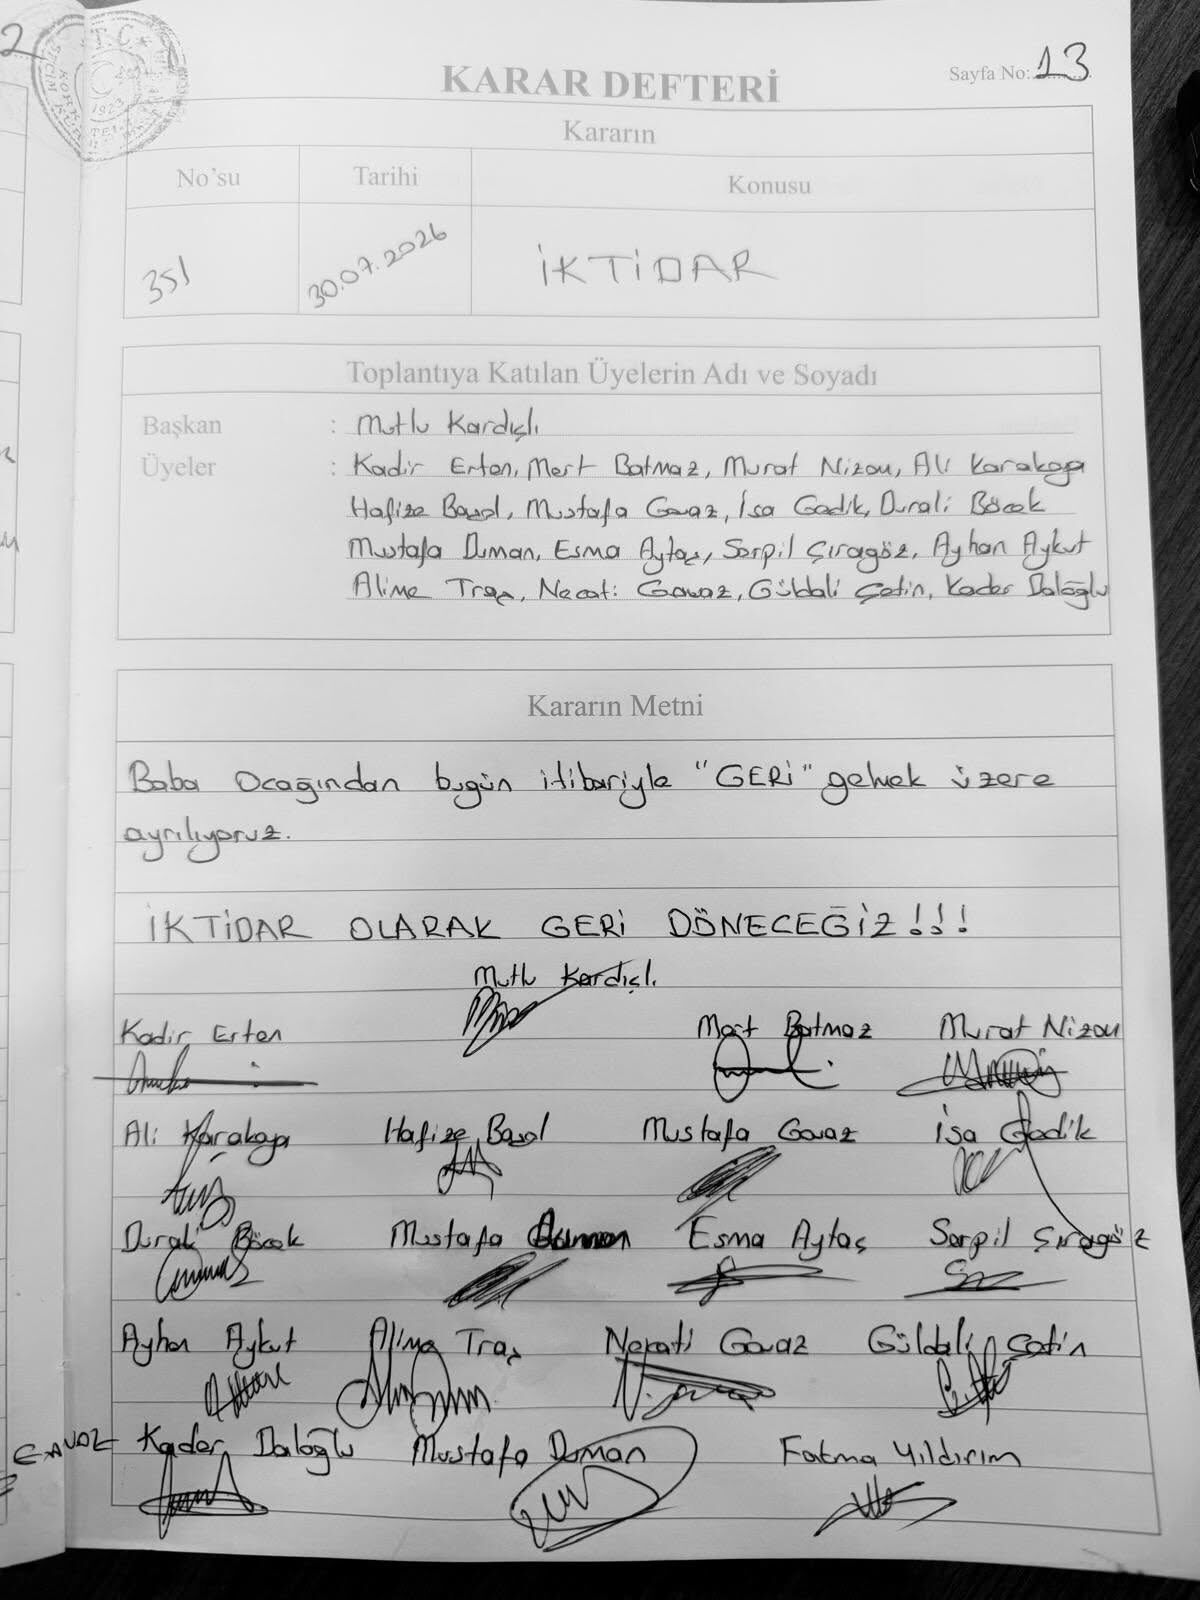 2
T.C.
1923
KARAR DEFTERİ
Sayfa No: 13
Kararın
No'su
Tarihi
Konusu
351
30.07.2026
İKTİDAR
Toplantıya Katılan Üyelerin Adı ve Soyadı
Başkan : Mutlu Kardıçlı
Üyeler : Kadir Erten, Mert Batmaz, Murat Nizou, Ali Karakaya
Hafize Basol, Mustafa Gavaz, İsa Gedik, Durali Böcek
Mustafa Duman, Esma Aytaş, Serpil Çıragöz, Ayhan Aykut
Alime Traş, Necati Gavaz, Güldali Çetin, Kader Daloğlu
Kararın Metni
Baba Ocağından bugün itibariyle "GERİ" gelmek üzere
ayrılıyoruz.
İKTİDAR OLARAK GERİ DÖNECEĞİZ!!!
Mutlu Kardıçlı
Kadir Erten Mert Batmaz Murat Nizou
Ali Karakaya Hafize Basol Mustafa Gavaz İsa Gedik
Durali Böcek Mustafa Esma Aytaş Serpil Çıragöz
Ayhan Aykut Alime Traş Necati Gavaz Güldali Çetin
Kader Daloğlu Mustafa Duman Fatma Yıldırım